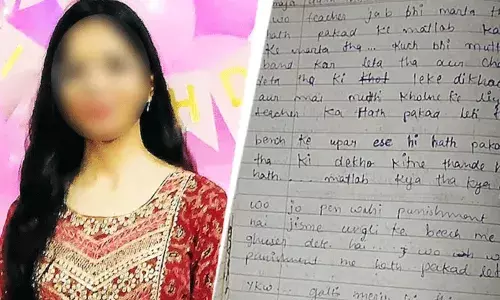 wo teacher jab bhi marta th
hath pakad ke matlab ka
ke marta tha... kuch bhi mutt
band kar leta tha aur cho
deta tha ki leke dikha
aur mai mutthi kholne ke li
teacher ka Hath pakad leti
bench ke upar ese hi hath pako
tha ki dekho kitne thande h
hath..... matlab kya tha kya
wo jo pen wahi punishment
hai jisme ungli ke beech me
dete hai... wo
punishment me hath pakad let
Ykw... galti meri hi